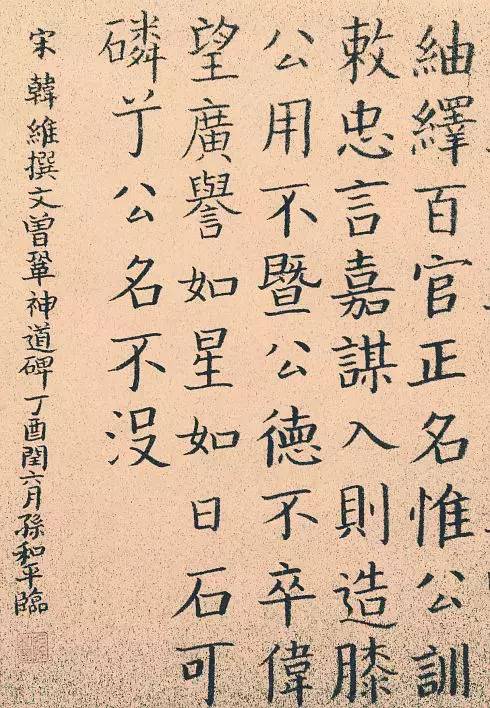 紬繹百官正名惟公訓
敕忠言嘉謀入則造膝
公用不暨公德不卒偉
望廣譽如星如日石可
磷兮公名不沒
宋韓維撰文曾鞏神道碑丁酉閏六月孫和平臨